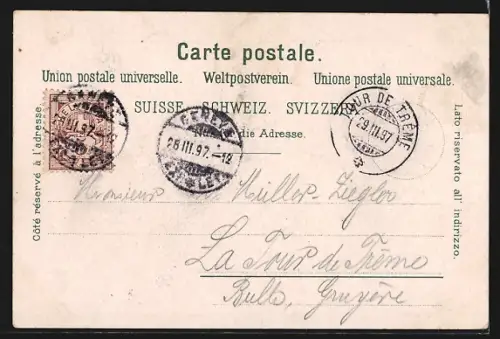 Carte postale.
Union postale universelle. Weltpostverein. Unione postale universale.
SUISSE. SCHWEIZ. SVIZZERA.
die Adresse.
Côté réservé à l'adresse.
Lato riservato all' indirizzo.
GENÈVE
28.III.97.-12
TOUR DE TRÊME
29.III.97
Monsieur Müller-Ziegler
La Tour de Trême
Bulle, Gruyère